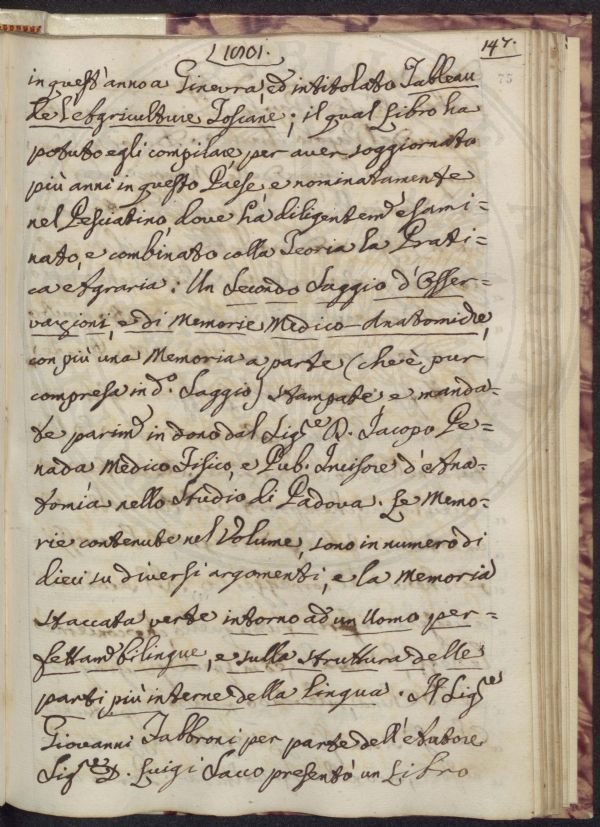 1801.
147.
75
in quest'anno a Ginevra, ed intitolato Tableau
de l'Agriculture Toscane; il qual Libro ha
potuto egli compilare, per aver soggiornato
più anni in questo Paese e nominatamente
nel Pesciatino, dove ha diligentem.e esami=
nato, e combinato colla Teoria la Prati=
ca Agraria: Un Secondo Saggio d'Osser=
vazioni, e di Memorie Medico-Anatomiche,
con più una Memoria a parte (che è pur
compresa in d.o Saggio) stampate e manda=
te parim.e in dono dal Sig.re D. Jacopo Pe=
nada Medico Fisico, e Pub. Incisore d'Ana=
tomia nello Studio di Padova. Le Memo=
rie contenute nel Volume, sono in numero di
dieci su diversi argomenti, e la Memoria
staccata verte intorno ad un Uomo per=
fettam.e bilingue, e sulla struttura delle
parti più interne della lingua. Il Sig.re
Giovanni Fabbroni per parte dell'Autore
Sig.re D. Luigi Sacco presentò un Libro